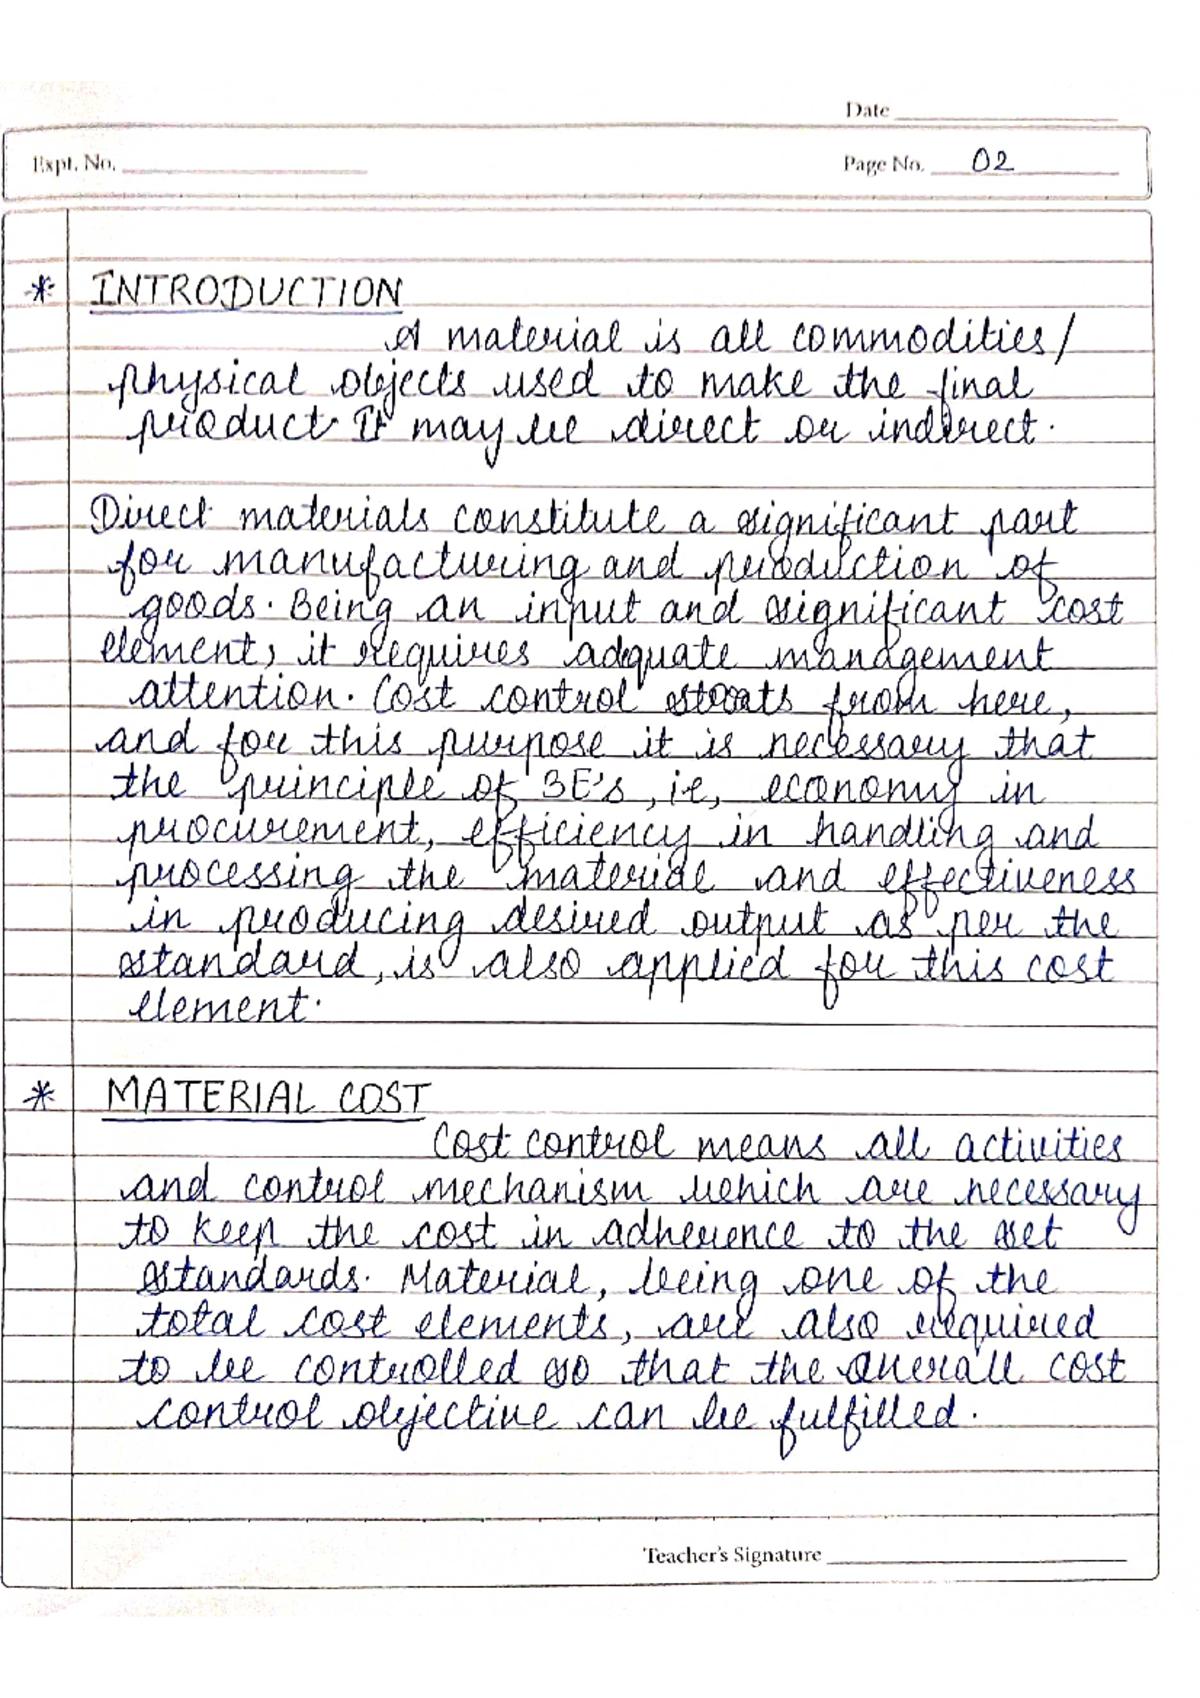 Date
Expt. No.
Page No. 02
* INTRODUCTION
A material is all commodities/
physical objects used to make the final
product. It may be direct or indirect.
Direct materials constitute a significant part
for manufacturing and production of
goods. Being an input and significant cost
element, it requires adequate management
attention. Cost control starts from here,
and for this purpose it is necessary that
the principle of 3E's, i.e, economy in
procurement, efficiency in handling and
processing the material and effectiveness
in producing desired output as per the
standard, is also applied for this cost
element.
* MATERIAL COST
Cost control means all activities
and control mechanism which are necessary
to keep the cost in adherence to the set
standards. Material, being one of the
total cost elements, are also required
to be controlled so that the overall cost
control objective can be fulfilled.
Teacher's Signature